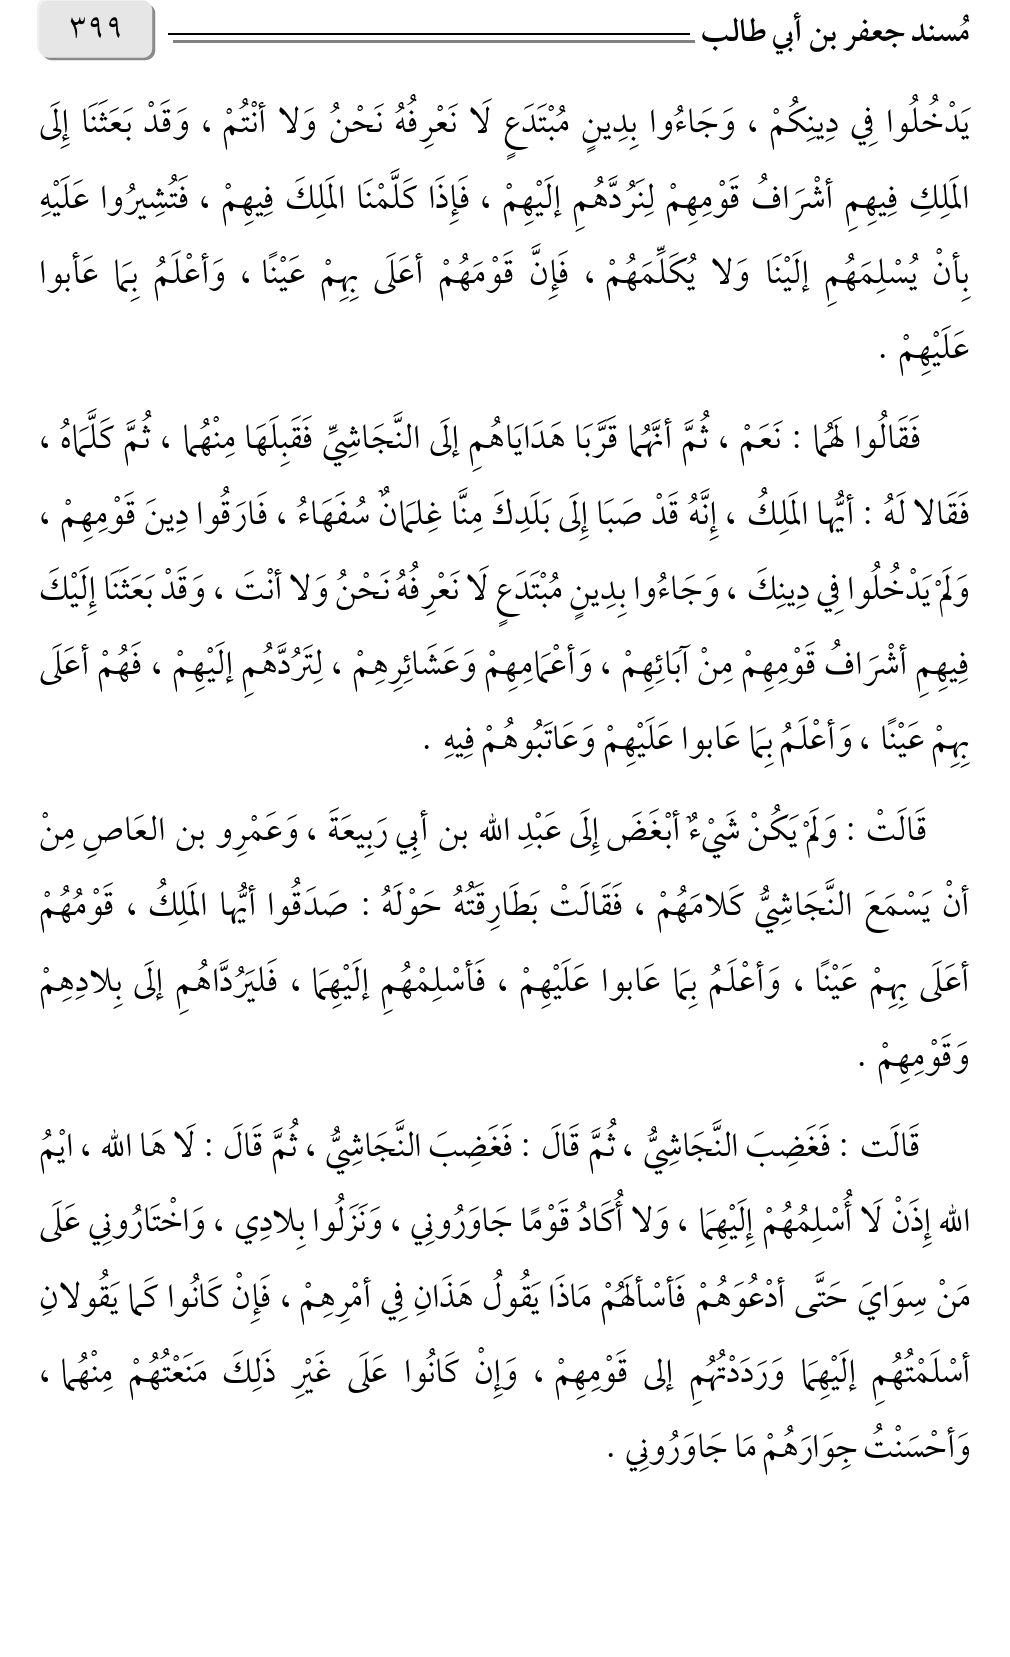 مُسند جعفر بن أبي طالب ٣٩٩
يَدْخُلُوا فِي دِينِكُمْ ، وَجَاءُوا بِدِينٍ مُبْتَدَعٍ لَا نَعْرِفُهُ نَحْنُ وَلا أنْتُمْ ، وَقَدْ بَعَثَنَا إِلَى
المَلِكِ فِيهِمِ أشْرَافُ قَوْمِهِمْ لِنَرُدَّهُمِ إلَيْهِمْ ، فَإِذَا كَلَّمْنَا المَلِكَ فِيهِمْ ، فَتُشِيرُوا عَلَيْهِ
بِأنْ يُسْلِمَهُمِ إلَيْنَا وَلا يُكَلِّمَهُمْ ، فَإِنَّ قَوْمَهُمْ أعَلَى بِهِمْ عَيْنًا ، وَأعْلَمُ بِمَا عَأبوا
عَلَيْهِمْ .
فَقَالُوا لَهُما : نَعَمْ ، ثُمَّ أنَّهُما قَرَّبَا هَدَايَاهُمِ إلَى النَّجَاشِيِّ فَقَبِلَهَا مِنْهُما ، ثُمَّ كَلَّمَاهُ ،
فَقَالا لَهُ : أيُّها المَلِكُ ، إِنَّهُ قَدْ صَبَا إِلَى بَلَدِكَ مِنَّا غِلمَانٌ سُفَهَاءُ ، فَارَقُوا دِينَ قَوْمِهِمْ ،
وَلَمْ يَدْخُلُوا فِي دِينِكَ ، وَجَاءُوا بِدِينٍ مُبْتَدَعٍ لَا نَعْرِفُهُ نَحْنُ وَلا أنْتَ ، وَقَدْ بَعَثَنَا إِلَيْكَ
فِيهِمِ أشْرَافُ قَوْمِهِمْ مِنْ آبَائِهِمْ ، وَأعْمَامِهِمْ وَعَشَائِرِهِمْ ، لِتَرُدَّهُمِ إلَيْهِمْ ، فَهُمْ أعَلَى
بِهِمْ عَيْنًا ، وَأعْلَمُ بِمَا عَابوا عَلَيْهِمْ وَعَاتَبُوهُمْ فِيهِ .
قَالَتْ : وَلَمْ يَكُنْ شَيْءٌ أبْغَضَ إِلَى عَبْدِ الله بن أبِي رَبِيعَةَ ، وَعَمْرِو بن العَاصِ مِنْ
أنْ يَسْمَعَ النَّجَاشِيُّ كَلامَهُمْ ، فَقَالَتْ بَطَارِقَتُهُ حَوْلَهُ : صَدَقُوا أيُّها المَلِكُ ، قَوْمُهُمْ
أعَلَى بِهِمْ عَيْنًا ، وَأعْلَمُ بِمَا عَابوا عَلَيْهِمْ ، فَأسْلِمْهُمِ إلَيْهِمَا ، فَليَرُدَّاهُمِ إلَى بِلادِهِمْ
وَقَوْمِهِمْ .
قَالَت : فَغَضِبَ النَّجَاشِيُّ ، ثُمَّ قَالَ : فَغَضِبَ النَّجَاشِيُّ ، ثُمَّ قَالَ : لَا هَا الله ، ايْمُ
الله إِذَنْ لَا أُسْلِمُهُمْ إِلَيْهِمَا ، وَلا أُكَادُ قَوْمًا جَاوَرُونِي ، وَنَزَلُوا بِلادِي ، وَاخْتَارُونِي عَلَى
مَنْ سِوَايَ حَتَّى أدْعُوَهُمْ فَأسْألَهُمْ مَاذَا يَقُولُ هَذَانِ فِي أمْرِهِمْ ، فَإِنْ كَانُوا كَما يَقُولانِ
أسْلَمْتُهُمِ إلَيْهِمَا وَرَدَدْتُهُمِ إلى قَوْمِهِمْ ، وَإِنْ كَانُوا عَلَى غَيْرِ ذَلِكَ مَنَعْتُهُمْ مِنْهُما ،
وَأحْسَنْتُ جِوَارَهُمْ مَا جَاوَرُونِي .